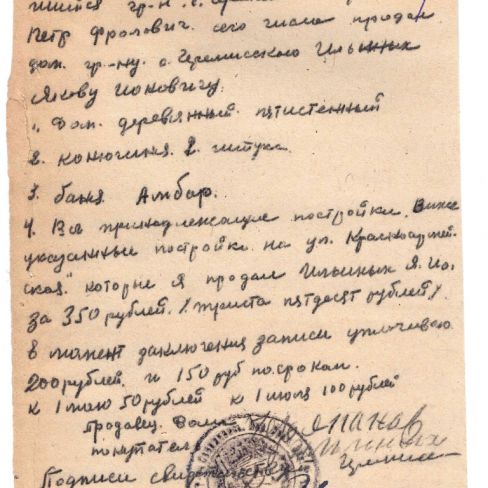 Петр Фролович. сего числа продал
дом. гр-ну. с. Черемисского Ильиных
Якову Ионовичу.
1. Дом. деревянный. пятистенный
2. Конюшня. 2. штуки
3. баня. Амбар.
4. Вся принадлежащие постройки. Выше
указанные постройки на ул. Красноармей-
ская" которые я продал Ильиных Я. Ио.
за 350 рублей. /триста пятдесят рублей/.
в момент заключения записи уплочиваю
200 рублей. и 150 руб по срокам.
к 1 маю 50 рублей к 1 июля 100 рублей
продавец. Дома
покупатель
Ильиных
Подписи свидетельствую